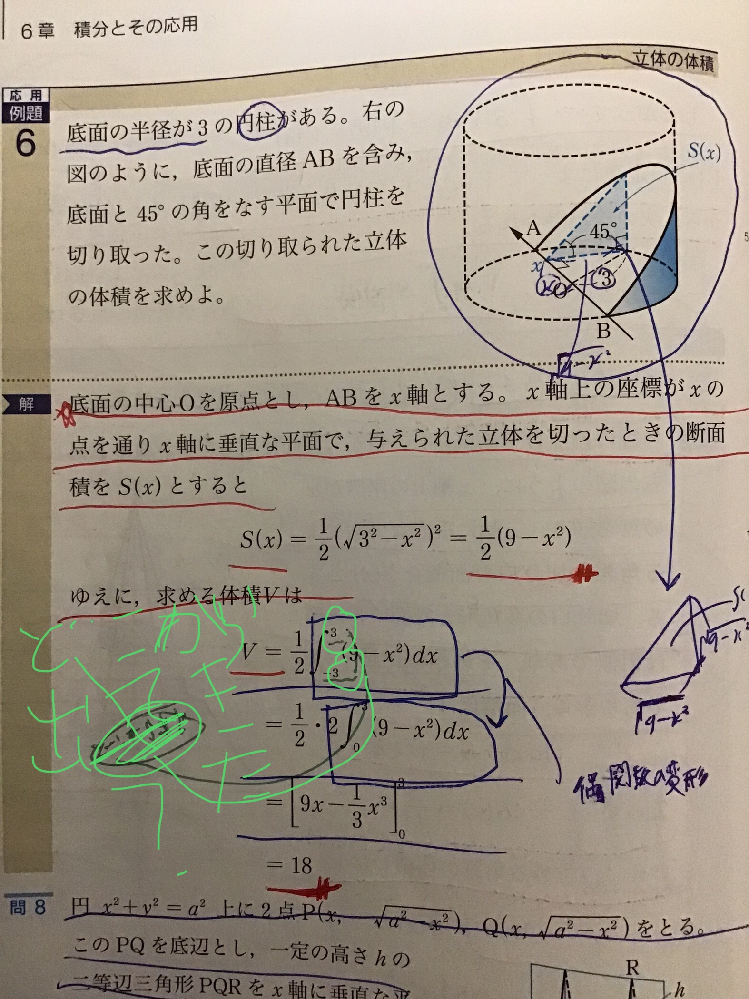 6章 積分とその応用
立体の体積
応用
例題
6
底面の半径が3の円柱がある。右の
図のように，底面の直径ABを含み，
底面と45°の角をなす平面で円柱を
切り取った。この切り取られた立体
の体積を求めよ。
S(x)
A
45°
x
O
3
B
√9-x²
解
底面の中心Oを原点とし，ABをx軸とする。x軸上の座標がxの
点を通りx軸に垂直な平面で，与えられた立体を切ったときの断面
積をS(x)とすると
S(x) = 1/2(√3²-x²)² = 1/2(9-x²)
ゆえに，求める体積Vは
V = 1/2∫_{-3}^{3}(9-x²)dx
= 1/2・2∫_0^3(9-x²)dx
= [9x-1/3x³]_0^3
= 18
√9-x²
√9-x²
偶関数の変形
どこから
出てきた
?
問8
円 x²+y²=a² 上に2点P(x, √a²-x²), Q(x, √a²-x²)をとる。
このPQを底辺とし，一定の高さhの
二等辺三角形PQRをx軸に垂直な平
R
h